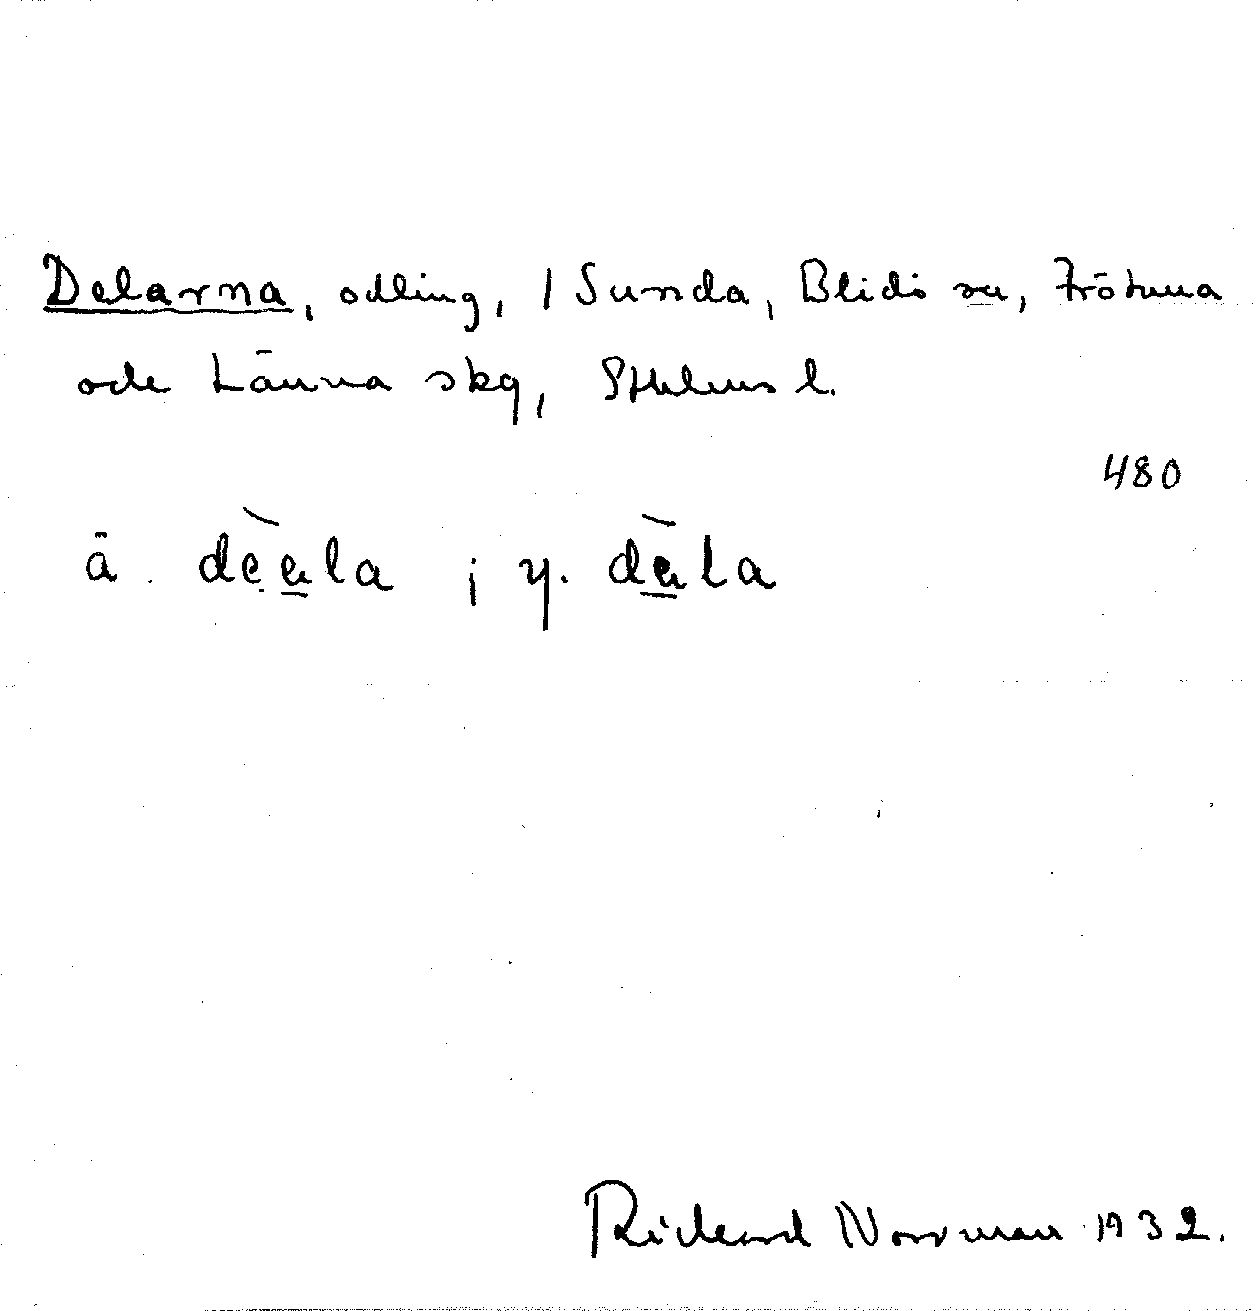 Delarna, odling, / Sunda, Blidö sn, Frötuna
och Länna skg, Sthlms l.
480
ä. dèala ; y. dàla
Rickard Norrman 1932.